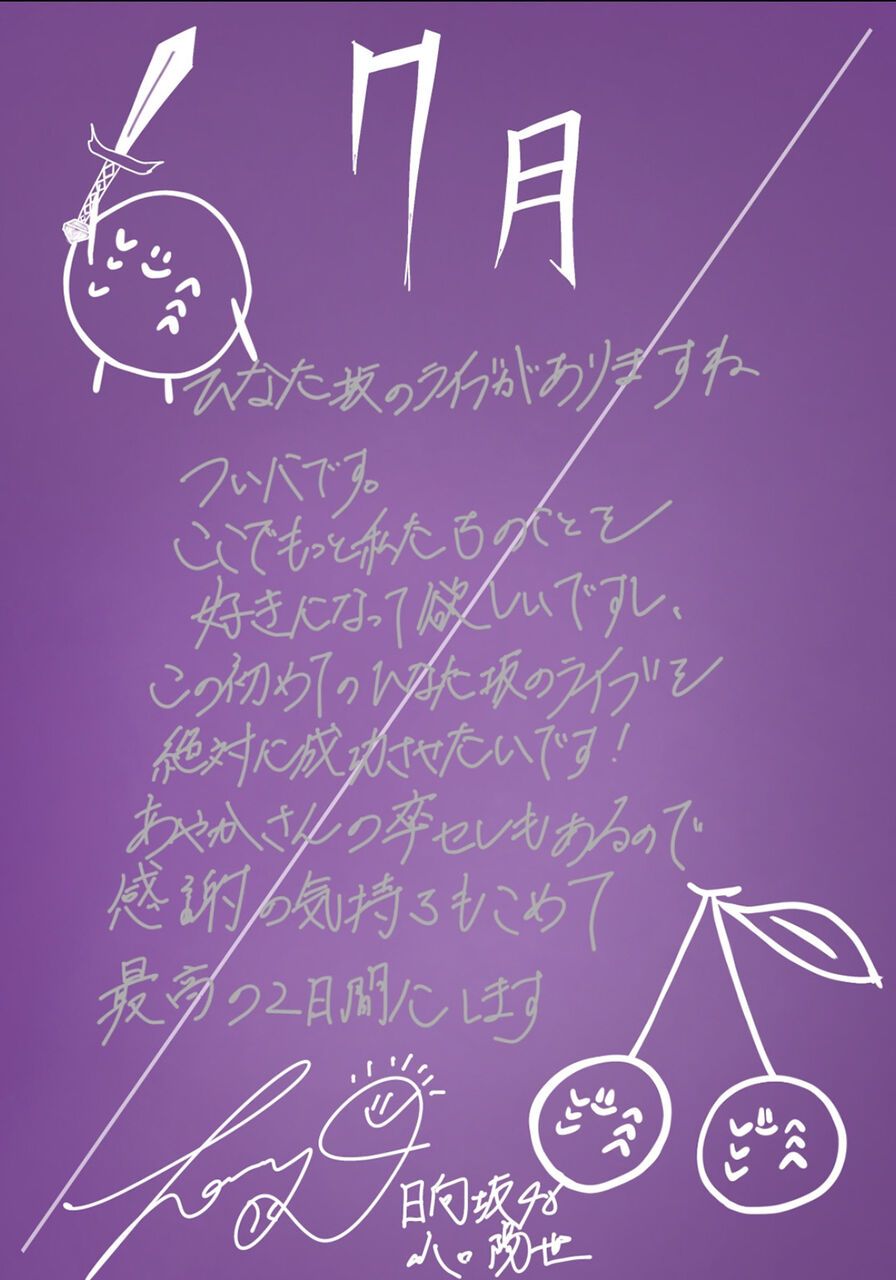 7月
ひなた坂のライブがありますね
ついにです。
ここでもっと私たちのことを
好きになって欲しいですし、
この初めてのひなた坂のライブを
絶対に成功させたいです！
あやかさんの卒セレもあるので
感謝の気持ちもこめて
最高の2日間にします
日向坂46
山口陽世